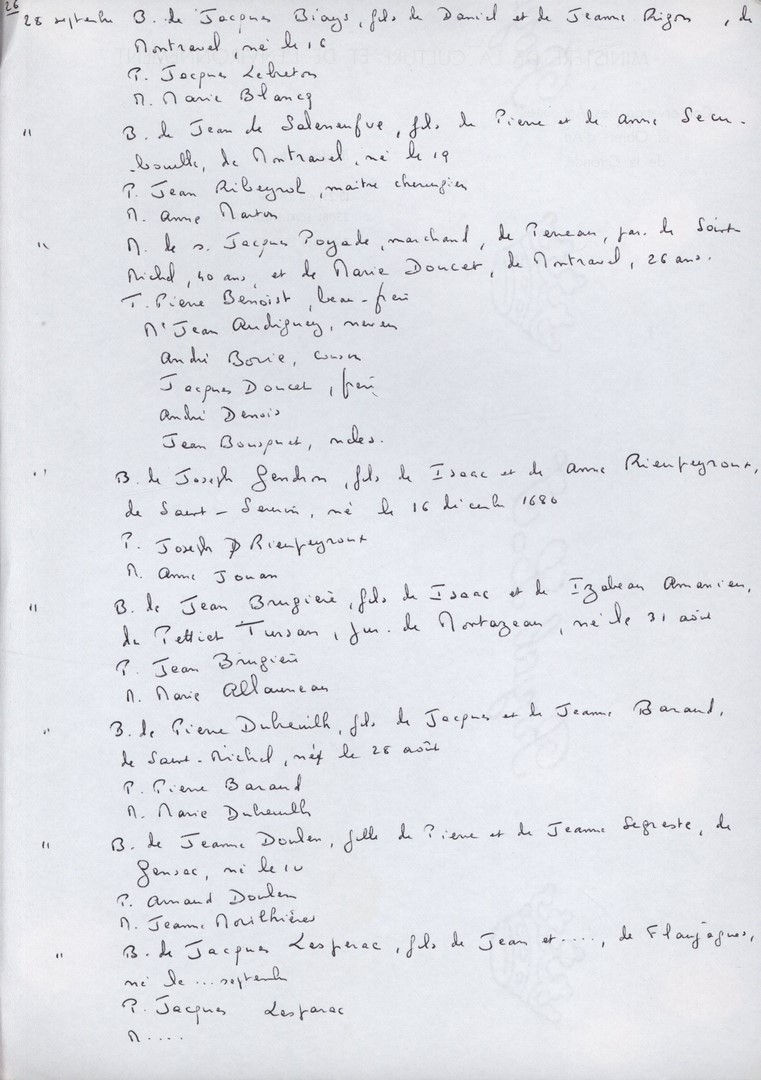 26
28 septembre B. de Jacques Biays, fils de Daniel et de Jeanne Rigon, de
Montravel, né le 16
P. Jacques Lebreton
M. Marie Blancq
" B. de Jean de Saleneufve, fils de Pierre et de Anne Secu-
-bouille, de Montravel, né le 19
P. Jean Ribeyrol, maitre chirurgien
M. Anne Marton
" M. de s. Jacques Poyade, marchand, de Peneau, par. de Saint
Michel, 40 ans, et de Marie Doucet, de Montravel, 26 ans.
T. Pierre Benoist, beau-frère
Mr Jean Audiguey, neveu
André Borie, cousin
Jacques Doucet, frère
André Denois
Jean Bousquet,
" B. de Joseph Gendron, fils de Isaac et de Anne Rienpeyroux,
de Saint-Seurin, né le 16 décembre 1680
P. Joseph Rienpeyroux
M. Anne Jouan
" B. de Jean Brugière, fils de Isaac et de Izabeau Amanieu,
de Pettiet Tursan, jur. de Montazeau, né le 31 août
P. Jean Brugière
M. Marie Allauneau
" B. de Pierre Dubreuilh, fils de Jacques et de Jeanne Baraud,
de Saint-Michel, né le 28 août
P. Pierre Baraud
M. Marie Dubreuilh
" B. de Jeanne Doulen, fille de Pierre et de Jeanne Segreste, de
Gensac, né le 10
P. Arnaud Doulen
M. Jeanne Morilhières
" B. de Jacques Lesparac, fils de Jean et ...., de Flaujagues,
né le ... septembre
P. Jacques Lesparac
M ....